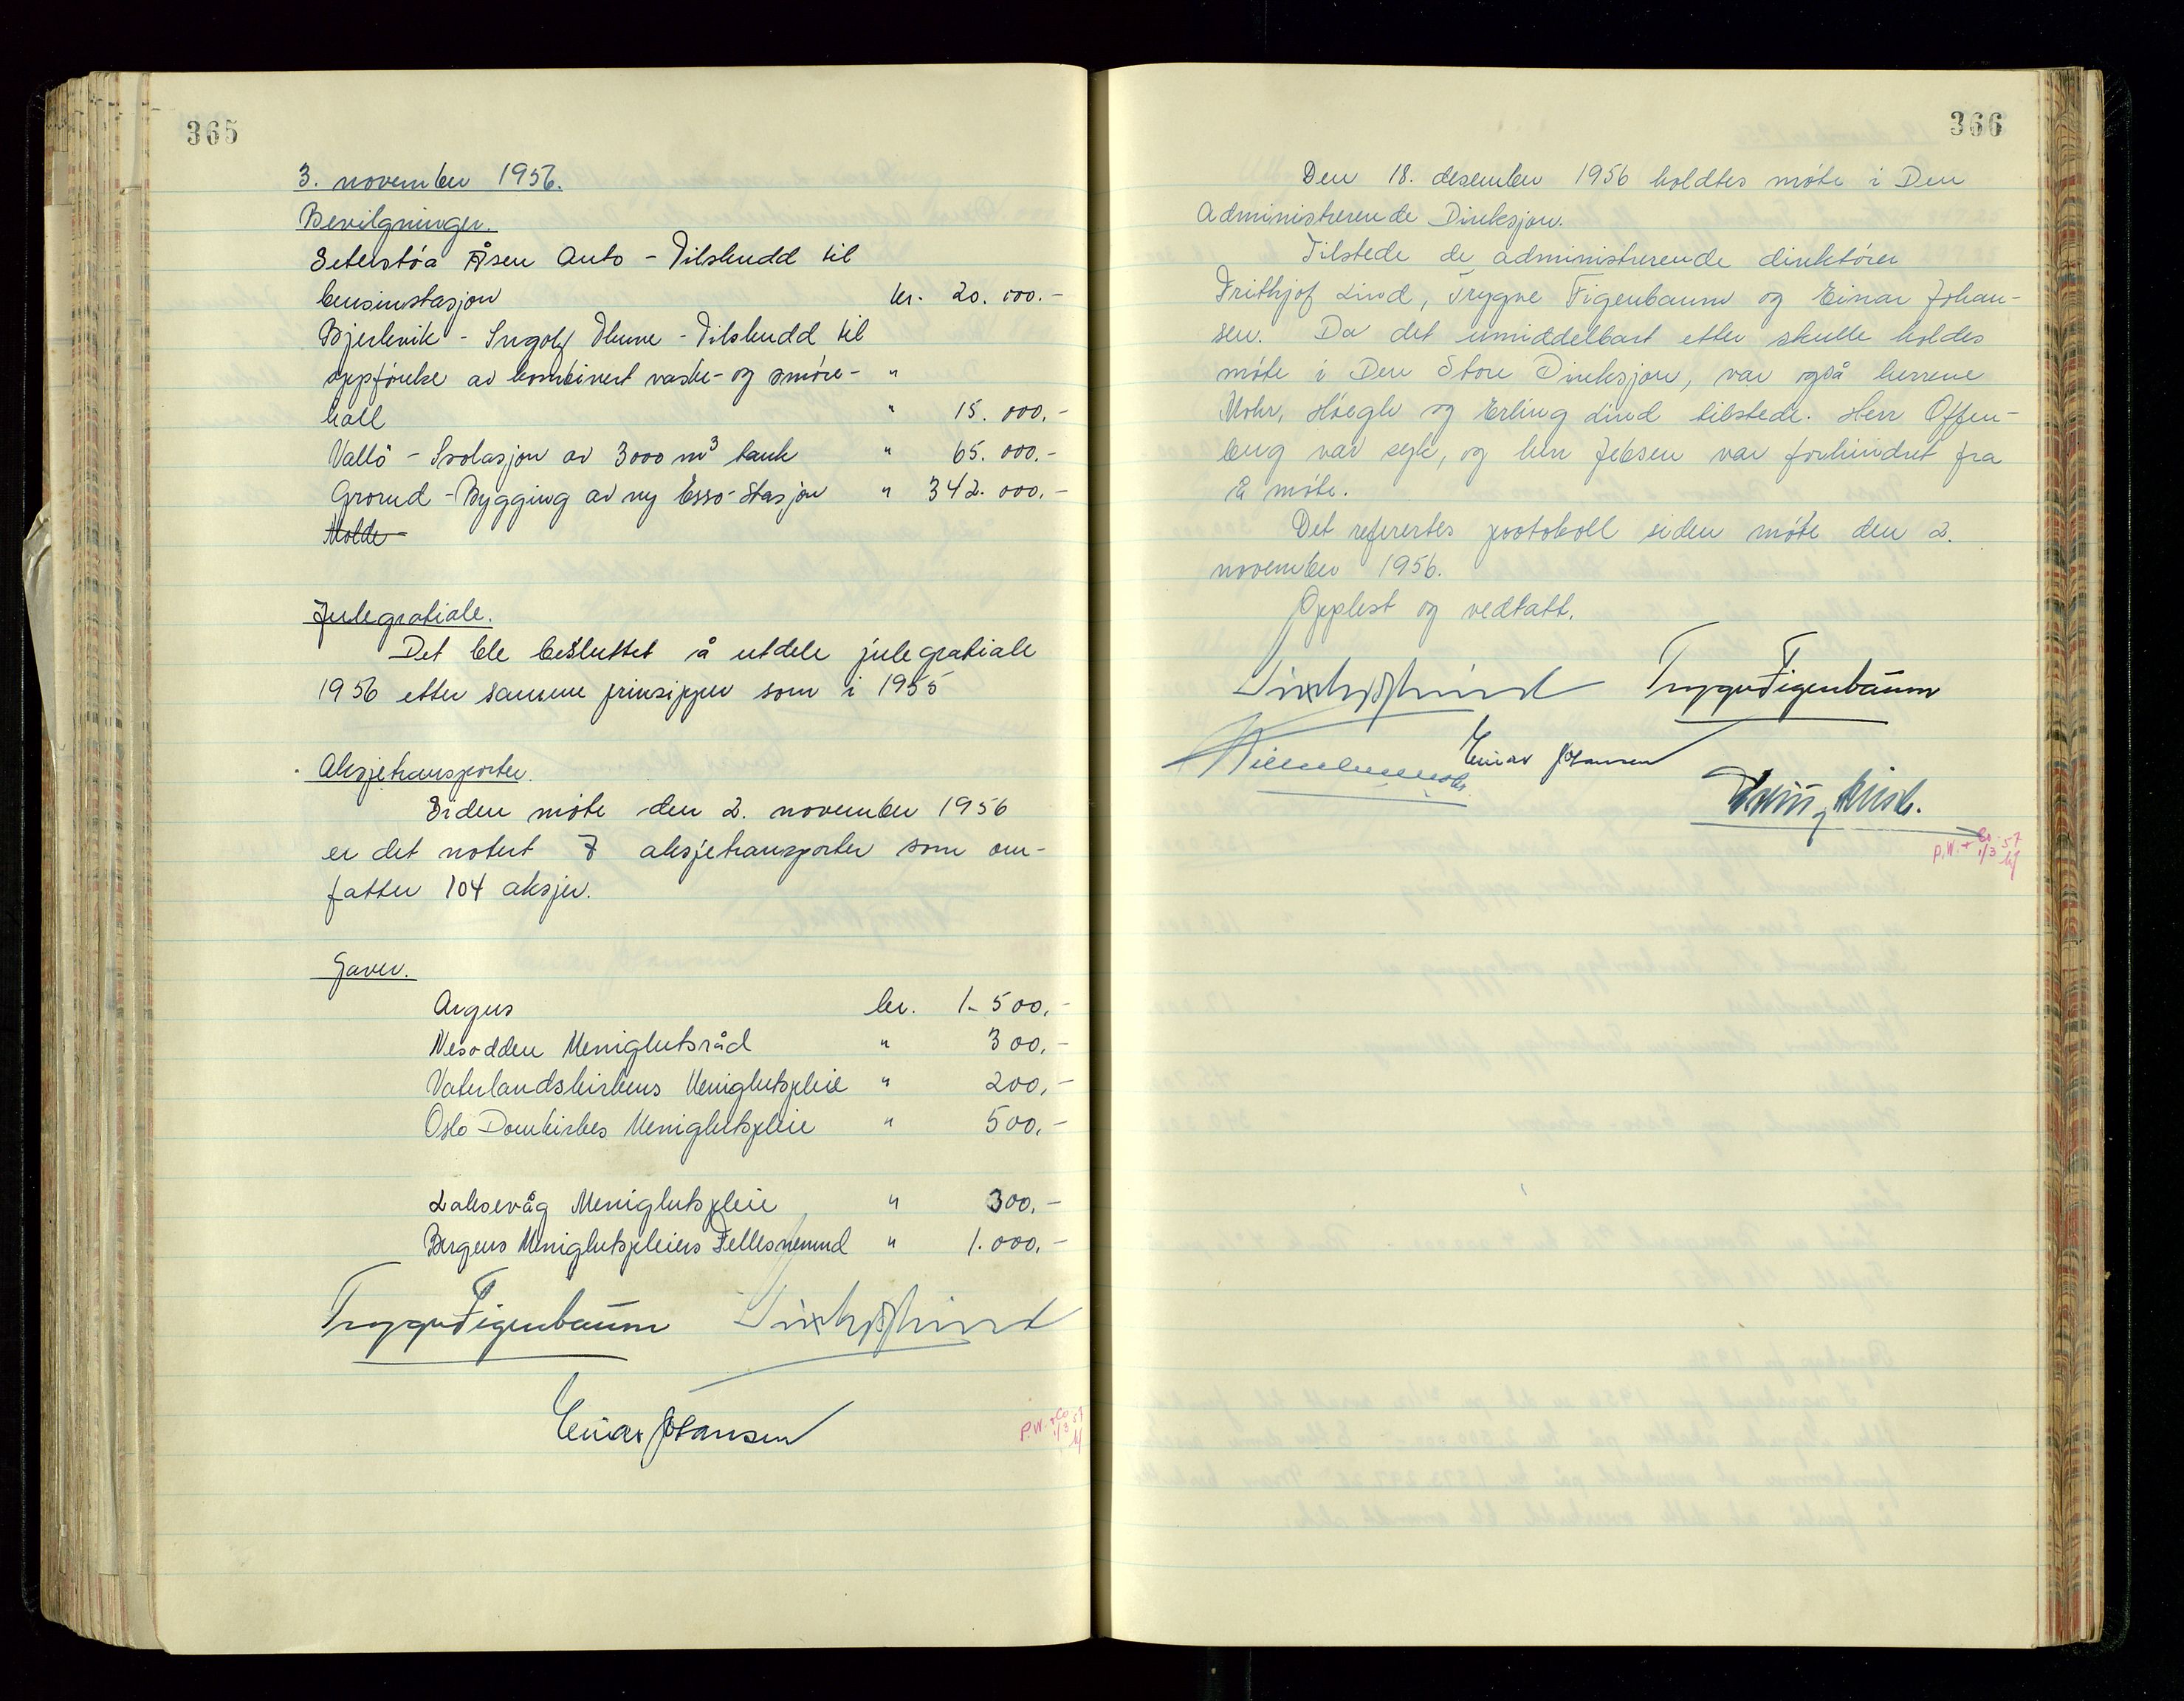 365
3. november 1956.
Bevilgninger.
Seterstøa Åsen Auto - Tilskudd til
bensinstasjon kr. 20.000.-
Bjerkvik - Ingolf Thune - Tilskudd til
oppførelse av kombinert vaske- og smøre- "
hall " 15.000,-
Vallö - Isolasjon av 3000 m³ tank " 65.000.-
Grorud - Bygging av ny Esso-Stasjon " 342.000,-
Molde
Julegratiale.
Det ble besluttet å utdele julegratiale
1956 etter samme prinsipper som i 1955
Aksjetransporter.
Siden møte den 2. november 1956
er det notert 7 aksjetransporter som om-
fatter 104 aksjer.
Gaver.
Argus kr. 1.500,-
Nesodden Menighetsråd " 300,-
Vaterlandskirkens Menighetspleie " 200,-
Oslo Domkirkes Menighetspleie " 500,-
Laksevåg Menighetspleie " 300,-
Bergens Menighetspleiers Fellesnemnd " 1.000,-
Trygve Figenbaum Frithjof Lind
Einar Johansen
P.W. + Co
1/3 57
366
Den 18. desember 1956 holdtes møte i Den
Administrerende Direksjon.
Tilstede de administrerende direktører
Frithjof Lind, Trygve Figenbaum og Einar Johan-
sen. Da det umiddelbart etter skulle holdes
møte i Den Store Direksjon, var også herrene
Mohr, Høegh og Erling Lind tilstede. Herr Offen-
berg var syk, og herr Jebsen var forhindret fra
å møte.
Det referertes protokoll siden møte den 2.
november 1956.
Opplest og vedtatt.
Frithjof Lind Trygve Figenbaum
Einar Johansen
Erling Lind.
P.W. + Co
1/3 57